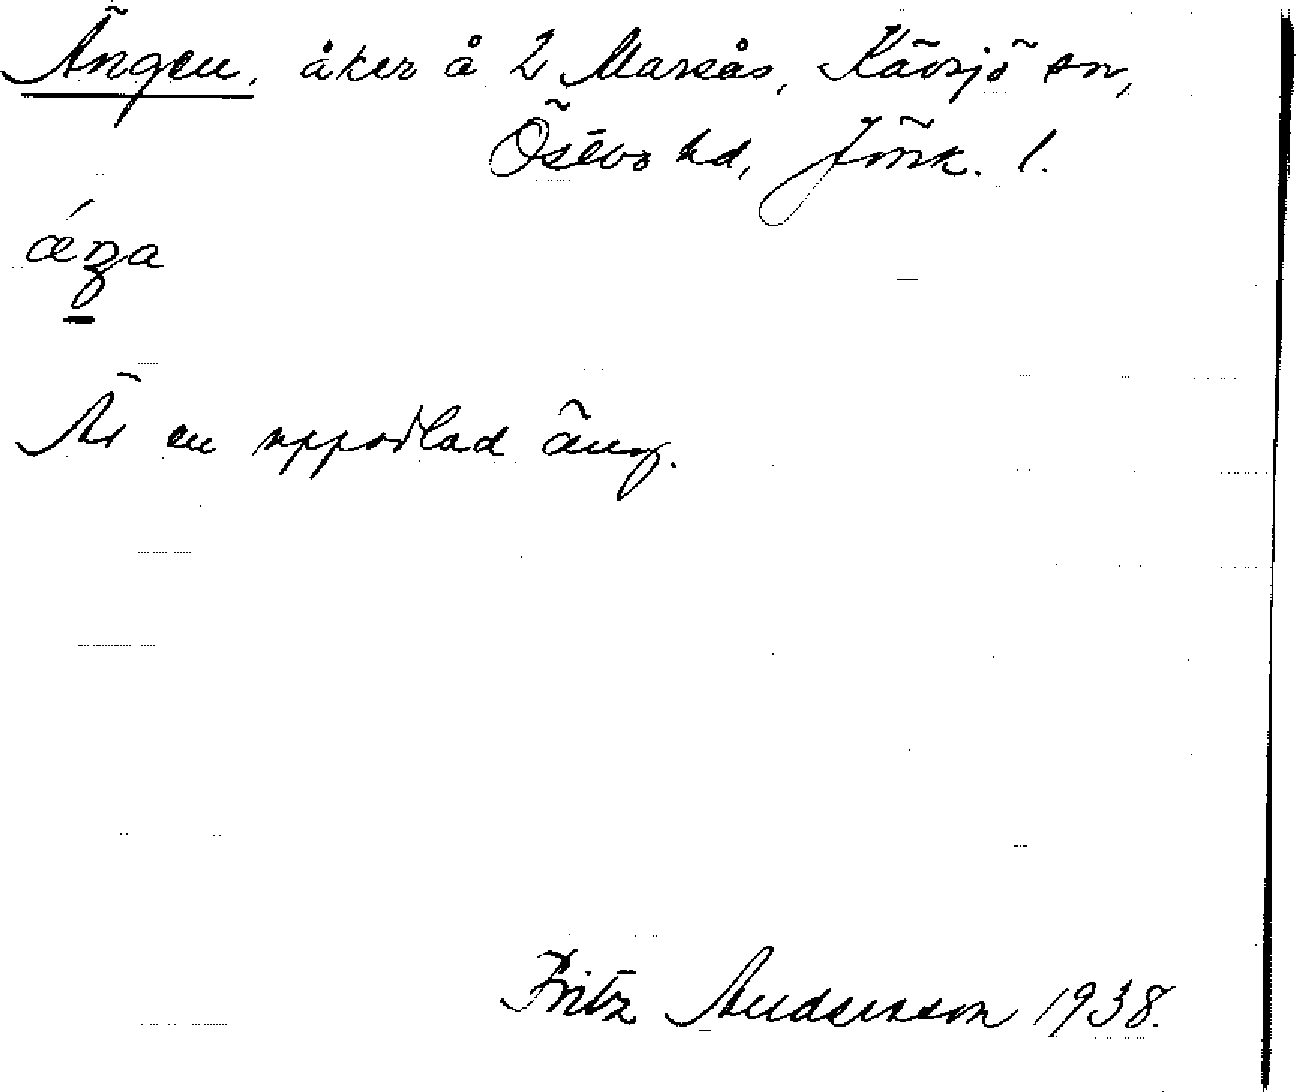 Ängen, åker å 2 Marsås, Kävsjö sn,
Östbo hd, Jönk. l.
Är en uppodlad äng.
Fritz Andersson 1938.